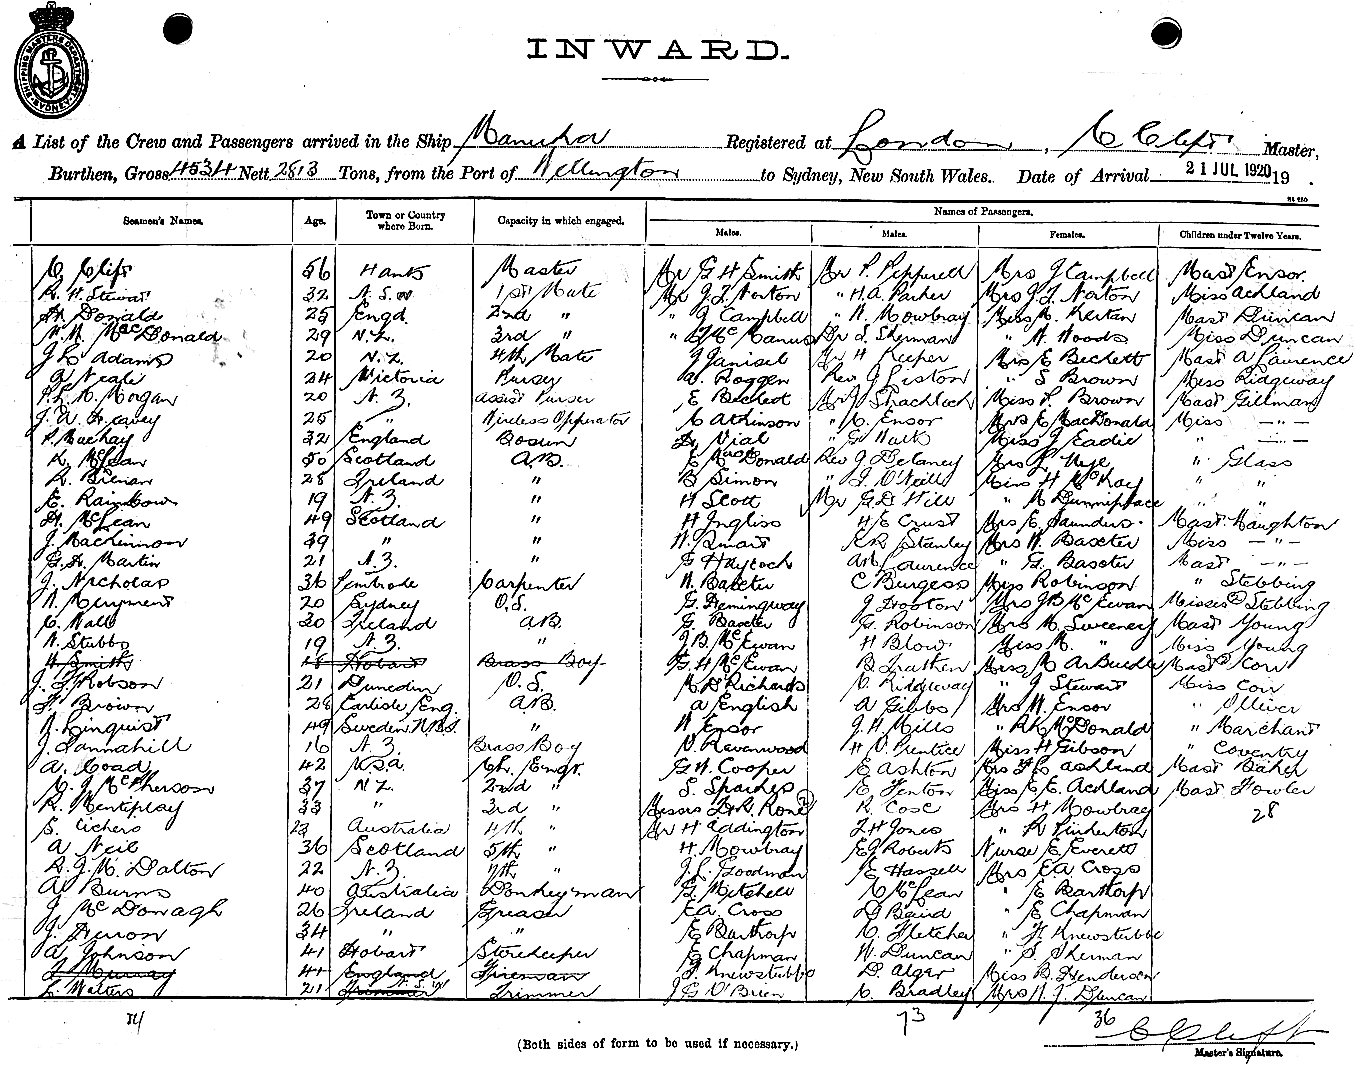 SHIPPING MASTERS DEPARTMENT SYDNEY
INWARD.
A List of the Crew and Passengers arrived in the Ship Manuka Registered at London, C Clift Master,
Burthen, Gross 4534 Nett 2813 Tons, from the Port of Wellington to Sydney, New South Wales. Date of Arrival 21 JUL 1920 19 .
Names of Passengers.
Seamen's Names. Age. Town or Country where Born. Capacity in which engaged. Males. Males. Females. Children under Twelve Years.
C Clift 56 Hants Master Mr G H Smith Mr P. Pepperell Mrs J Campbell Mast Ensor
R. H. Stewart 32 N.S.W 1st Mate Mr J J Norton " H. A. Parker Mrs J J Norton Miss Achland
Donald 25 Engd. 2nd " " J Campbell " N. Mowbray Miss M. Mast Duncan
MacDonald 29 N.Z. 3rd " " McManus Dr S. Sherman " N. Woods Miss Duncan
J L Adams 20 N.Z. 4th Mate J Janisel Mr H Keeper Mrs E Beckett Mast A Laurence
A Neale 24 Victoria Purser A. Roggen Rev J Liston " S Brown Miss Ridgeway
Morgan 20 N.Z. Assist Purser E Miss P. Brown Mast Gillman
25 " Wireless Opperator C Atkinson " C. Ensor Mrs E MacDonald Miss -"-
32 England Bosun Vial " G. Miss J Eadie " -"-
R. McLean 50 Scotland A.B. E McDonald Rev J Delaney Mrs " Glass
R. 28 Ireland " B Simon " J. O'Neill Miss H McKay " "
E. Rainbow 19 N.Z. " H Scott Mr G. D. Hill " " "
McLean 49 Scotland " H Ingliss H E Crust Mrs E. Saunders Mast Haughton
J. MacKinnon 39 " " N. Smart Stanley Mrs N. Baxter Miss -"-
Martin 21 N.Z. " G Haycock Laurence " G. Baxter Mast -"-
J. Nicholas 36 Carpenter N. Baxter C Burgess Miss Robinson " Stebbing
N. Meryment 20 Sydney O.S. G. Hemingway J Hooton Mrs J B McEwan Misses (2) Stebbing
C. 30 Ireland A.B. G. Baxter G. Robinson Mrs M. Sweeney Mast Young
N. Stubbs 19 N.Z. " J. B. McEwan H Blow Miss M. " Miss Young
H Smith 18 Hobart Brass Boy G. H McEwan B Miss M Mast Corr
J. Robson 21 Dunedin O.S. Richards C. Ridgeway " J Stewart Miss Corr
Brown 28 Carlisle Eng. A.B. A English A Gibbs Mrs N. Ensor " Olliver
Linquist 49 Sweden N.B.S. " N Ensor J. H Mills " McDonald " Marchant
J. Tannahill 16 N.Z. Brass Boy Ravenwood H V. Prentice Miss H Gibson " Coventry
A. Coad 42 N.S.A. Ch. Engr. G. N. Cooper E Ashton Mrs Ashland Mast Baker
McPherson 37 N.Z. 2nd " S. Sparkes E Fenton Miss E. E. Achland Mast Fowler
R. Mentiplay 33 " 3rd " R. Cose Mrs H Mowbray 28
S. 23 Australia 4th " Mr H Addington J H Jones " R Pinkerton
A Neil 36 Scotland 5th " H. Mowbray E J Roberts Nurse E Everett
R. J. M. Dalton 22 N.Z. 7th " J. L. Goodman E Hassell Mrs E A Cross
A Burns 40 Australia Donkeyman G. Mitchell C McLean " E Barthorp
J McDonagh 26 Ireland Greaser E A. Cross D Baird " E Chapman
J. Heron 34 " " E Barthorp C. Fletcher " H Knewstubb
A Johnson 41 Hobart Storekeeper E Chapman N. Duncan " S Sherman
Murray 44 England Fireman J. Knewstubb D. Alger Miss B. Henderson
L. Walters 21 N.S.W Trimmer J G O'Brien C. Bradley Mrs N. J. Duncan
73 36
C Clift
(Both sides of form to be used if necessary.) Master's Signature.